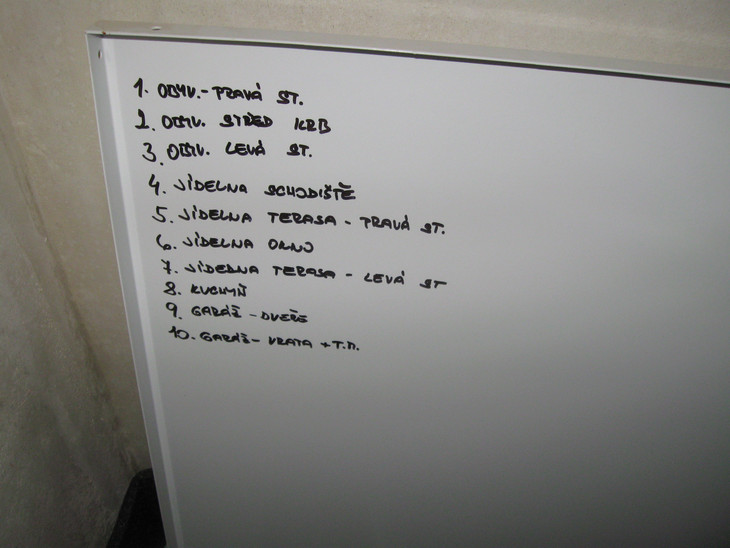 1. OBÝV. - PRAVÁ ST.
2. OBÝV. STŘED KRB
3. OBÝV. LEVÁ ST.
4. JÍDELNA SCHODIŠTĚ
5. JÍDELNA TERASA - PRAVÁ ST.
6. JÍDELNA OKNO
7. JÍDELNA TERASA - LEVÁ ST
8. KUCHYŇ
9. GARÁŽ - DVEŘE
10. GARÁŽ - VRATA + T.M.